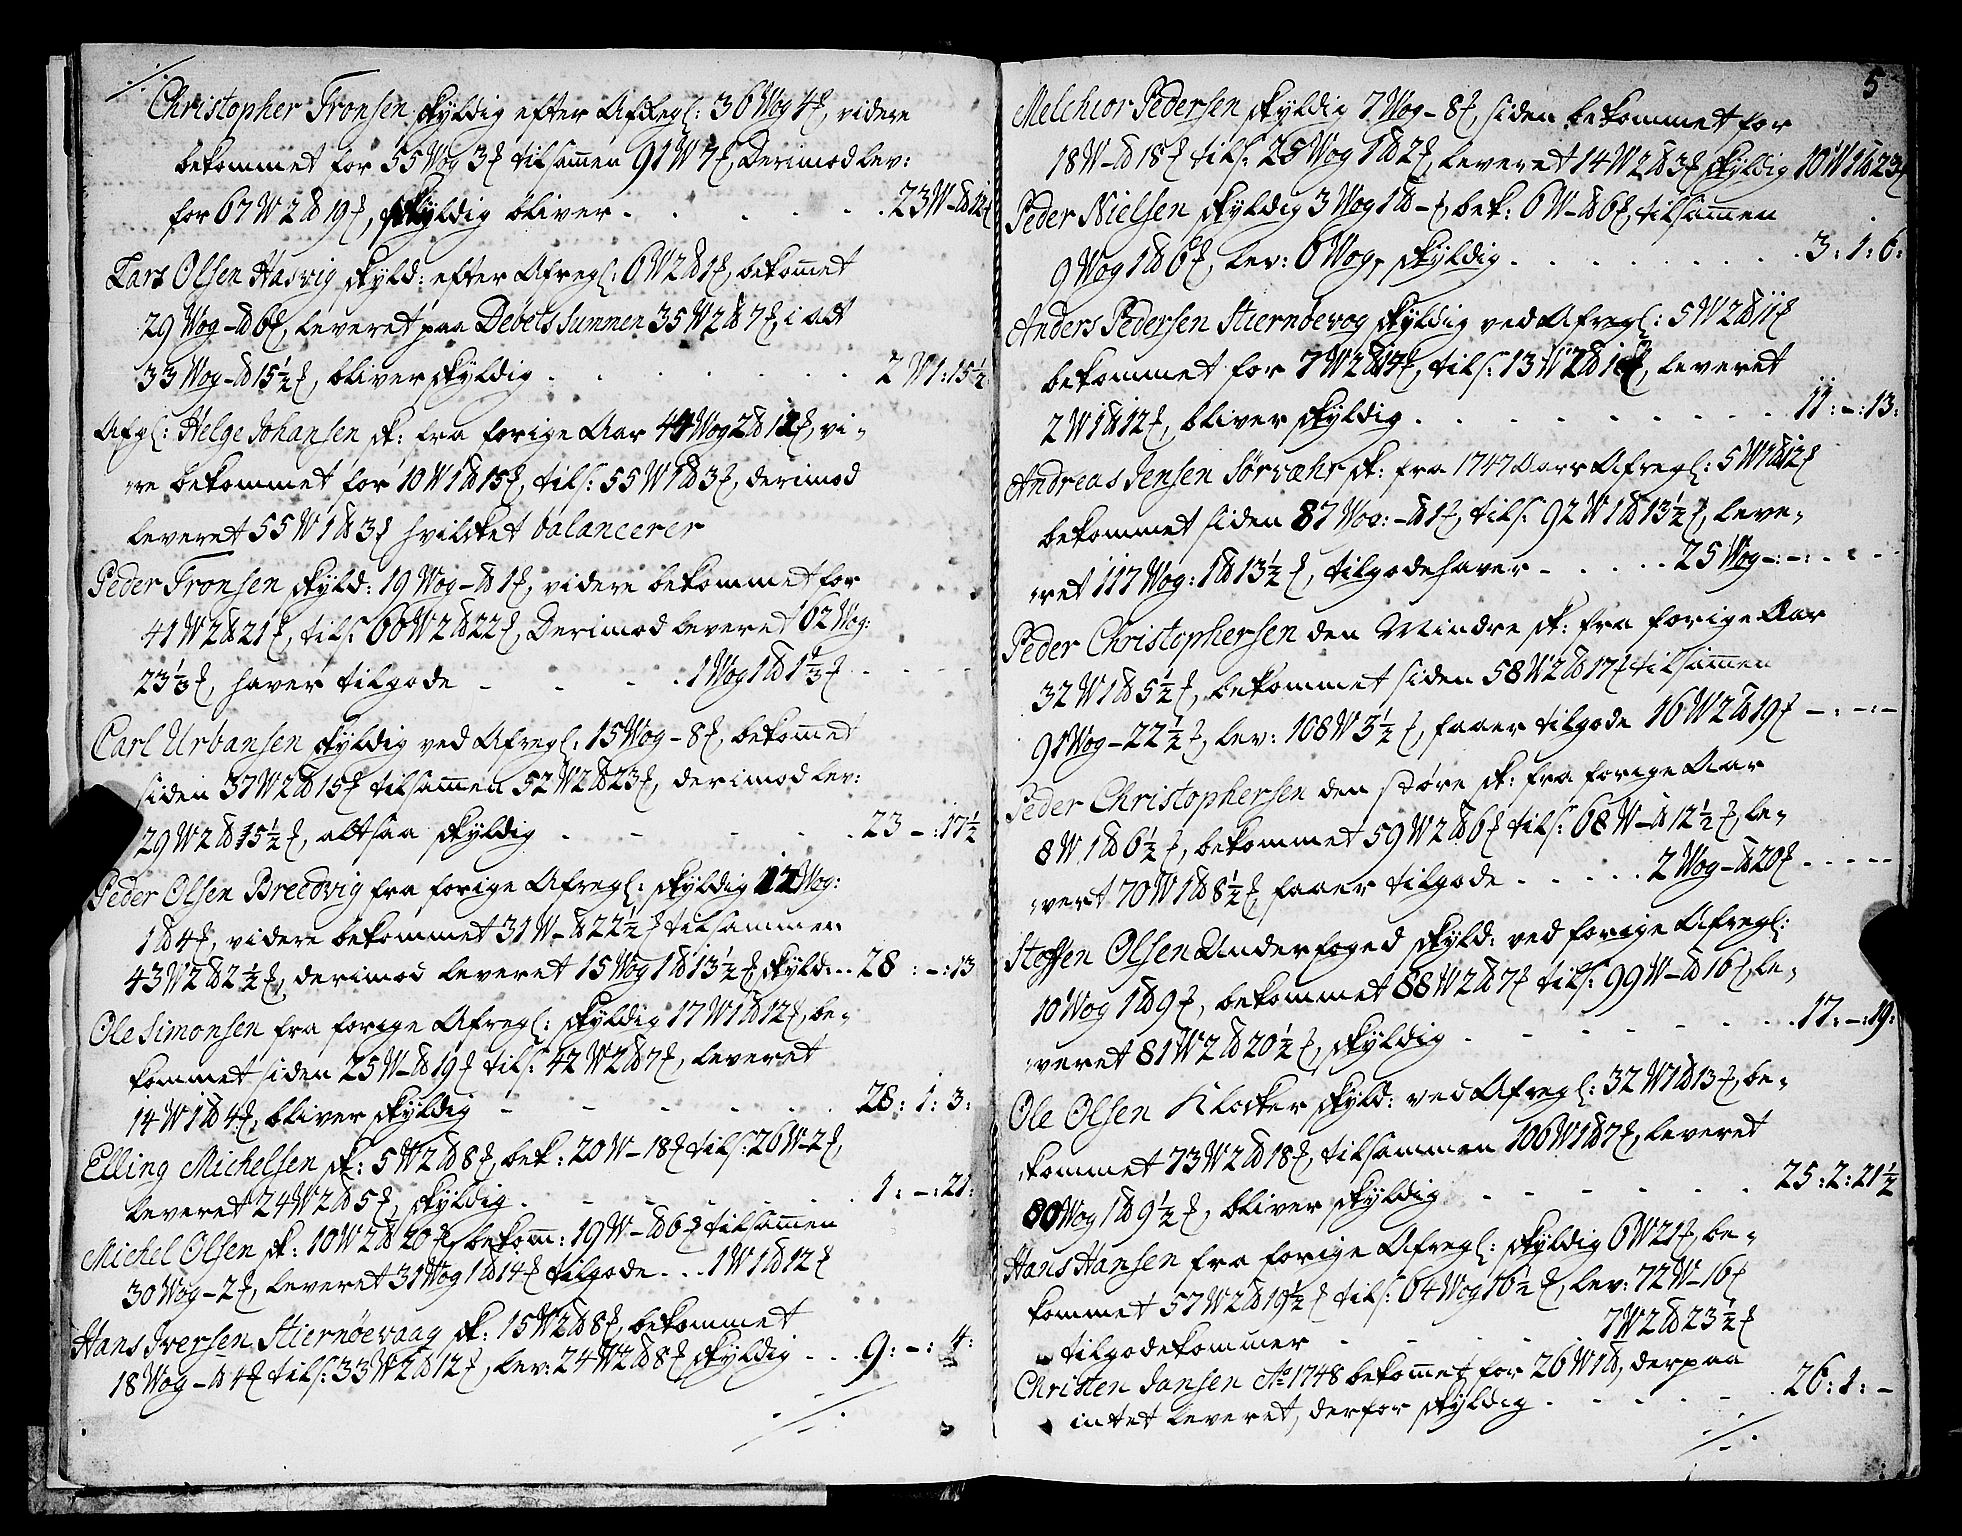 ./.
Christopher Tronsen skyldig efter Afregl: 36 Wog 4 ℔, videre
bekommet for 55 Wog 3 ℔ tilsam̅en 91 W 7 ℔, Derimod lev:
for 67 W 2 ad 19 ℔, skyldig bliver . . . . . . 23 W - ad 12 ℔
Lars Olsen Hasvig skyld: efter Afregl: 6 W 2 ad 1 ℔, bekom̅et
29 Wog - ad 6 ℔, leveret paa Debets Summen 35 W 2 ad 7 ℔, i alt
33 Wog - ad 15½ ℔, bliver skyldig . . . . . . 2 W 1: 15½
Afgl: Helge Johansen sk: fra forige Aar 44 Wog 2 ad 12 ℔, vi-
re bekommet for 10 W 1 ad 15 ℔, tils: 55 W 1 ad 3 ℔, derimod
leveret 55 W 1 ad 3 ℔ hvilcket balancerer
Peder Tronsen skyld: 19 Wog - ad 1 ℔, videre bekommet for
41 W 2 ad 21 ℔, tils: 60 W 2 ad 22 ℔, Derimod leveret 62 Wog:
23⅓ ℔, haver tilgode - - - . 1 Wog 1 ad 1⅓ ℔ - - -
Carl Urbansen skyldig ved Afregl: 15 Wog - 8 ℔, bekom̅et
siden 37 W 2 ad 15 ℔ tilsam̅en 52 W 2 ad 23 ℔, derimod lev:
29 W 2 ad 15½ ℔, altsaa skyldig . - - - . . 23 - : 17½
Peder Olsen Bredvig fra forige Afregl: skyldig 12 Wog:
1 ad 4 ℔, videre bekommet 31 W - ad 22½ ℔ tilsammen
43 W 2 ad 2½ ℔, derimod leveret 15 Wog 1 ad 13½ ℔ skyld: . . 28 : - : 13
Ole Simonsen fra forige Afregl: skyldig 17 W 1 ad 12 ℔, be-
kommet siden 25 W - ad 19 ℔ tils: 42 W 2 ad 7 ℔, leveret
14 W 1 ad 4 ℔, bliver skyldig - - - - . . 28: 1: 3:
Elling Michelsen sk: 5 W 2 ad 8 ℔, bek: 20 W - 18 ℔ tils: 26 W - 2 ℔,
leveret 24 W 2 ad 5 ℔, skyldig . - - - - . . 1: - : 21:
Michel Olsen sk: 10 W 2 ad 20 ℔, bekom̅: 19 W - ad 6 ℔ tilsam̅en
30 Wog - 2 ℔, leveret 31 Wog 1 ad 14 ℔ tilgode . . . 1 W 1 ad 12 ℔
Hans Iversen Stiernøevaag sk: 15 W 2 ad 8 ℔, bekommet
18 Wog - ad 4 ℔ tils: 33 W 2 ad 12 ℔, lev: 24 W 2 ad 8 ℔ skyldig . . . 9: - : 4:
./.
5
Melchior Pedersen skyldig 7 Wog - 8 ℔, siden bekommet for
18 W - ad 18 ℔ tils: 25 Wog 1 ad 2 ℔, leveret 14 W 2 ad 3 ℔ skyldig 10 W 1 ad 23 ℔
Peder Nielsen skyldig 3 Wog 1 ad - ℔, bek: 6 W - ad 6 ℔, tilsam̅en
9 Wog 1 ad 6 ℔, lev: 6 Wog, skyldig . . . . . . . 3: 1: 6:
Anders Pedersen Stiernøevog skyldig ved Afregl: 5 W 2 ad 11 ℔
bekommet for 7 W 2 ad 14 ℔, tils: 13 W 2 ad 1 ℔, leveret
2 W 1 ad 12 ℔, bliver skyldig . . . . . . . 11: - : 13:
Andreas Jensen Sørvæhr sk: fra 1747 Aars Afregl: 5 W 1 ad 12 ℔
bekommet siden 87 Wog: - ad 1 ℔, tils: 92 W 1 ad 13½ ℔, leve-
ret 117 Wog: 1 ad 13½ ℔, tilgodehaver - . . . . 25 Wog - : - : - - -
Peder Christophersen den Mindre sk: fra forige Aar
32 W 1 ad 5½ ℔, bekommet siden 58 W 2 ad 17 ℔ tilsam̅en
91 Wog - 22½ ℔, lev: 108 W 3½ ℔, faaer tilgode 16 W 2 ad 19 ℔ - : - : -
Peder Christophersen den støre sk: fra forige Aar
8 W 1 ad 6½ ℔, bekommet 59 W 2 ad 6 ℔ tils: 68 W - ad 12½ ℔, le-
veret 70 W 1 ad 8½ ℔ faaer tilgode . . . . . 2 Wog - ad 20 ℔ - - - - -
Steffen Olsen Underfoged skyld: ved forige Afregl:
10 Wog 1 ad 9 ℔, bekommet 88 W 2 ad 7 ℔ tils: 99 W - ad 16 ℔, le-
veret 81 W 2 ad 20½ ℔, skyldig . - - - - - . . 17: - : 19:
Ole Olsen Klocker skyld: ved Afregl: 32 W 1 ad 13 ℔, be-
kommet 73 W 2 ad 18 ℔, tilsammen 106 W 1 ad 7 ℔, leveret
80 Wog 1 ad 9½ ℔, bliver skyldig - - - - - . 25: 2: 21½
Hans Hansen fra forige Afregl: skyldig 6 W 21 ℔, be-
kommet 57 W 2 ad 19½ ℔ tils: 64 Wog 16½ ℔, lev: 72 W - 16 ℔
tilgodekommer - - - . 7 W 2 ad 23½ ℔
Christen Jansen Ao 1748 bekom̅et for 26 W 1 ad, derpaa
intet leveret, derfor skyldig . - - - - . 26: 1: -
./.